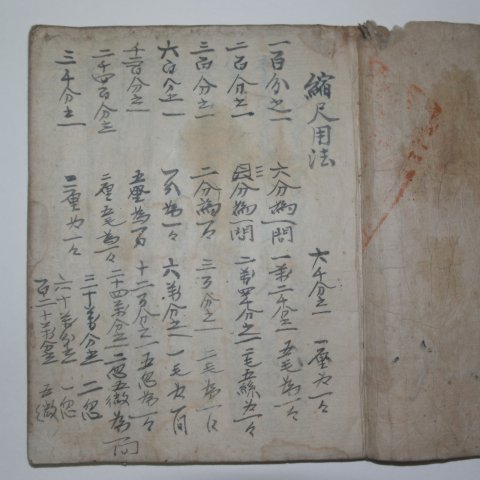 縮尺用法
一百分之一 六分為一間
二百分之一 三分為一間
三百分之一 二分為一々
六百分之一 一分為一々
千二百分之一 五厘為一间
二千四百分之一 二厘五毛為一々
三千分之一 二厘为一々
六千分之一 一厘为一々
一萬二千分之一 五毛為一々
二萬四千分之一 二毛五絲为一々
三万分之一 二毛為一々
六萬分之一 一毛为一间
十二万分之一 五忽為一々
二十四萬分之一 二忽五微為一间
三十萬分之一 二忽
六十萬分之一 一忽
百二十萬分之一 五微